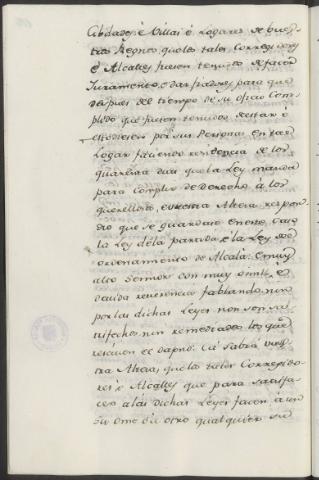 Cibdades, è Villas è Logares de bues-
tros Regnos, quelos tales Corregidores
è Alcalles fuesen tenudos defacer
Juramento, e dar fiadores, para que
despues del tiempo de su oficio Com-
plido que fuesen tenudos destar è
estodiesen por sus Personas en tal
Logar faciendo residencia de los
quarenta dias que la Ley manda
para Complir de derecho à los
querellosos, è vuestra Alteza respon-
dio que se guardase en este Caso
la Ley dela partida, è la Ley del
ordenamiento de Alcalà. E muy
alto Sennor con muy omill, è
devida reverencia fablando, non
por las dichas Leyes non son sa-
tisfechos nin remediados los que
resciuen el dapno. Cà Sabrà vues-
tra Alteza, que los tales Corregido-
res è Alcalles que para satisfa-
cer alas dichas Leyes facen à un
Su ome ò à otro qualquier su